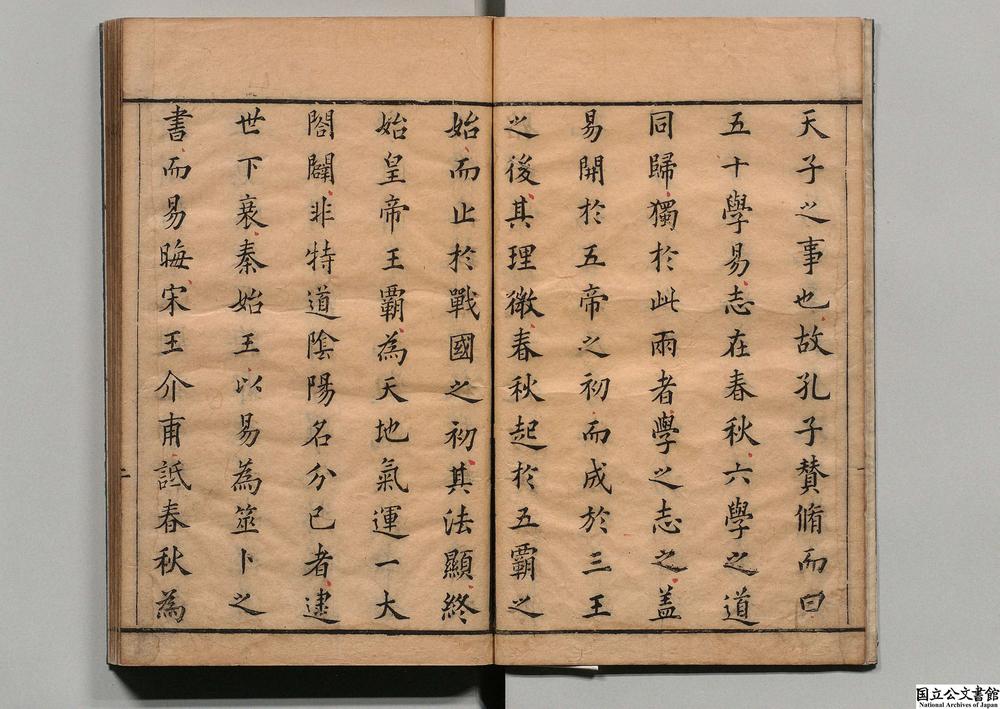 天子之事也故孔子賛脩而曰
五十學易志在春秋六學之道
同歸獨於此兩者學之志之盖
易開於五帝之初而成於三王
之後其理微春秋起於五霸之
始而止於戰國之初其法顯終
始皇帝王霸為天地氣運一大
闔闢非特道陰陽名分已者逮
世下衰秦始王以易為筮卜之
書而易晦宋王介甫詆春秋為
一
二
国立公文書館
National Archives of Japan